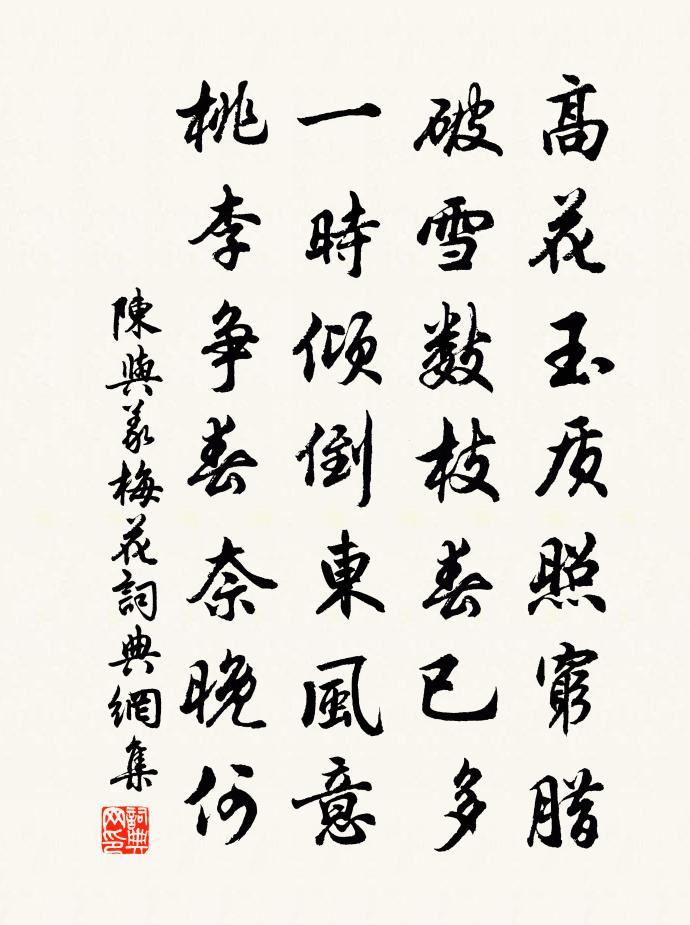 高花玉质照窮腊
破雪數枝春已多
一時傾倒東風意
桃李争春奈晚何
陳與義梅花詞典網集
詞典网印